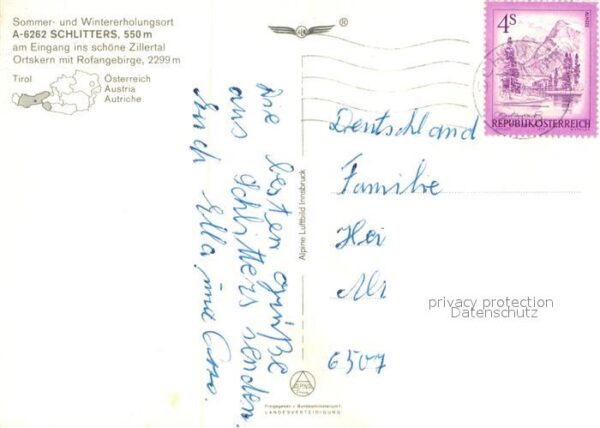 Sommer- und Wintererholungsort
A-6262 SCHLITTERS, 550 m
am Eingang ins schöne Zillertal
Ortskern mit Rofangebirge, 2299 m
Tirol
Österreich
Austria
Autriche
®
4S
REPUBLIK ÖSTERREICH
Die besten Grüße
aus Schlitters senden
Euch Ella und
Alpine Luftbild Innsbruck
Deutschland
Familie
Hei
6507
privacy protection
Datenschutz
Freigegeben v. Bundesministerium f.
LANDESVERTEIDIGUNG